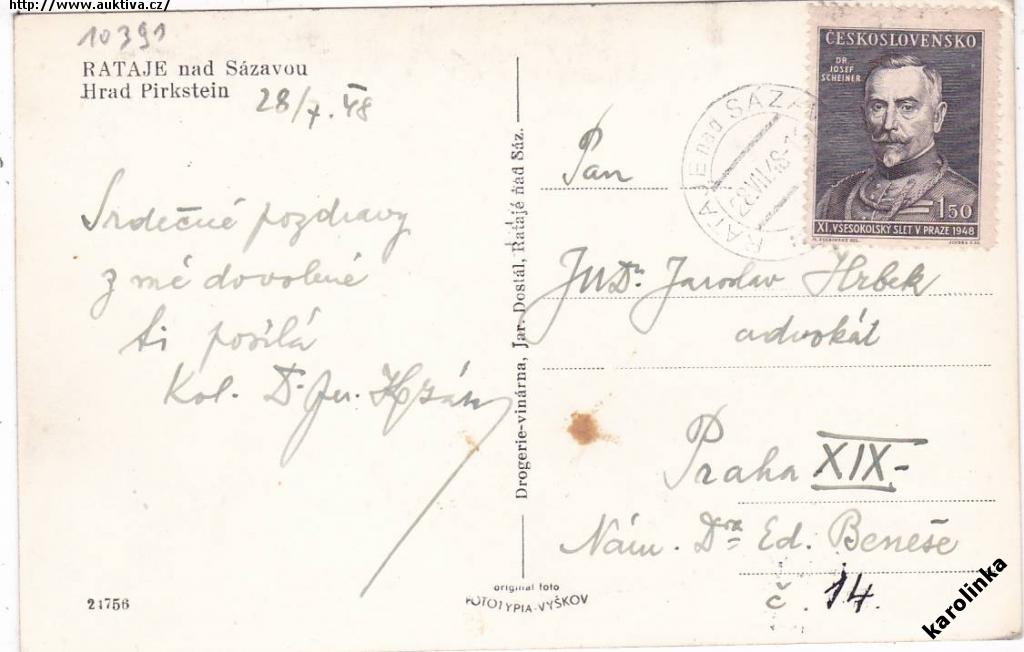 http://www.auktiva.cz/
10391
RATAJE nad Sázavou
Hrad Pirkstein
28/7. 48
Srdečné pozdravy
z mé dovolené
ti posílá
Kol. Dr. Jar.
Drogerie-vinárna, Jar. Dostál, Rataje nad Sáz.
Pan
JUDr. Jaroslav Hrbek
advokát
Praha XIX-
Nám. Dra Ed. Beneše
č. 14.
RATAJE nad SÁZA
28.VII.48
ČESKOSLOVENSKO
DR.
JOSEF
SCHEINER
1.50
XI. VŠESOKOLSKÝ SLET V PRAZE 1948
21756
original foto
FOTOTYPIA-VYŠKOV
karolinka